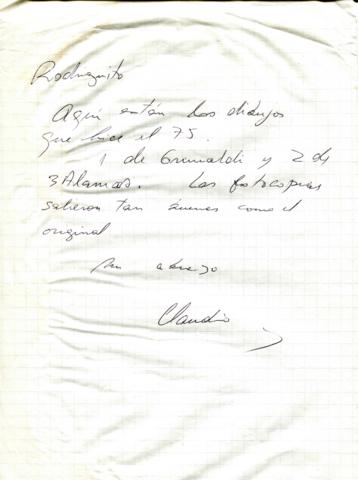 Rodriguito
Aquí están los dibujos
que hice el 75.
1 de Grimaldi y 2 de
3 Alamos. Las fotocopias
salieron tan buenas como el
original
un abrazo
Claudio